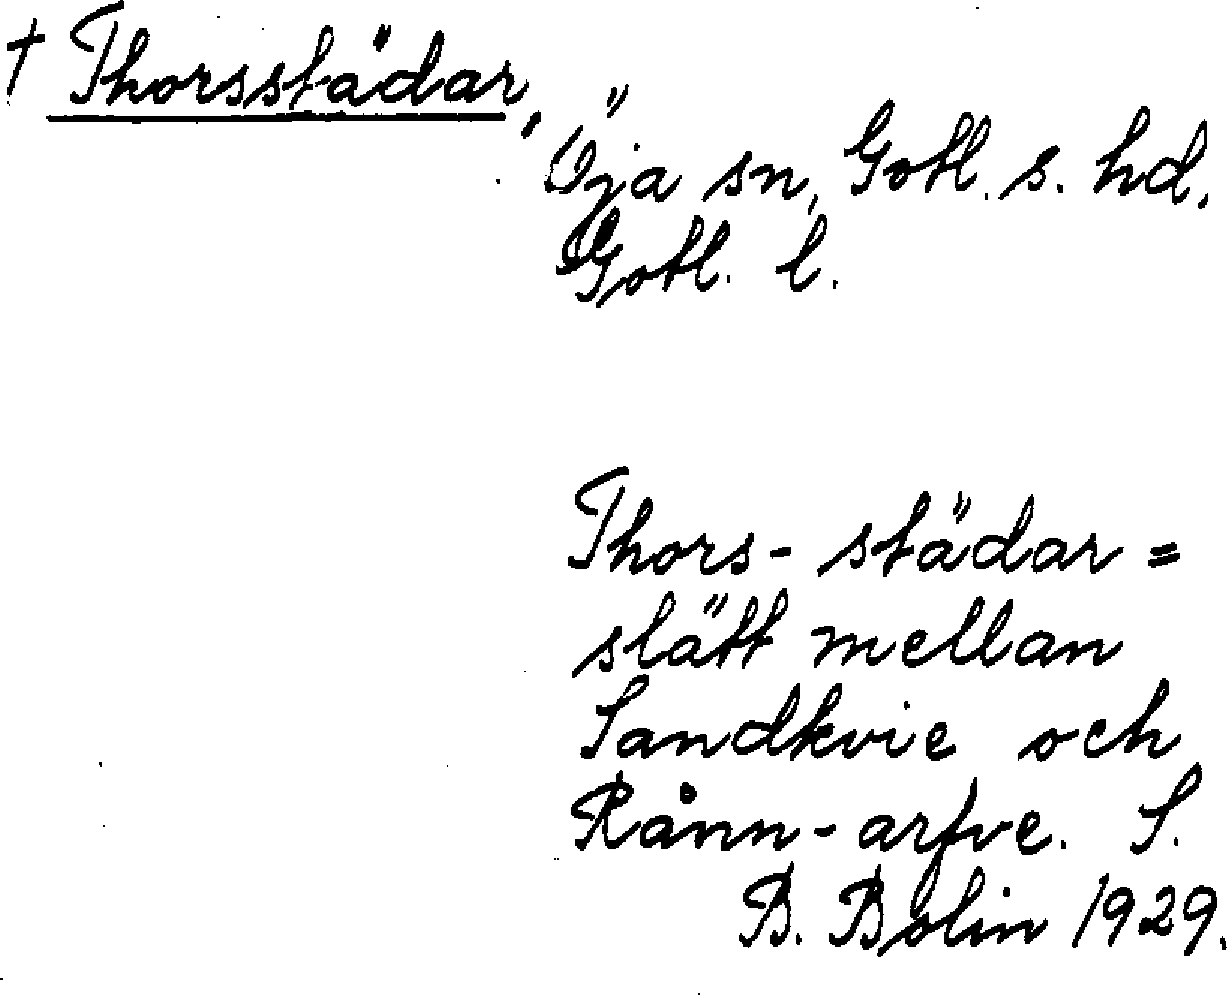 † Thorsstädar,
Öja sn, Gotl. s. hd.
Gotl. l.
Thors-städar =
slätt mellan
Sandkvie och
Rånn-arfve. S.
B. Bolin 1929.